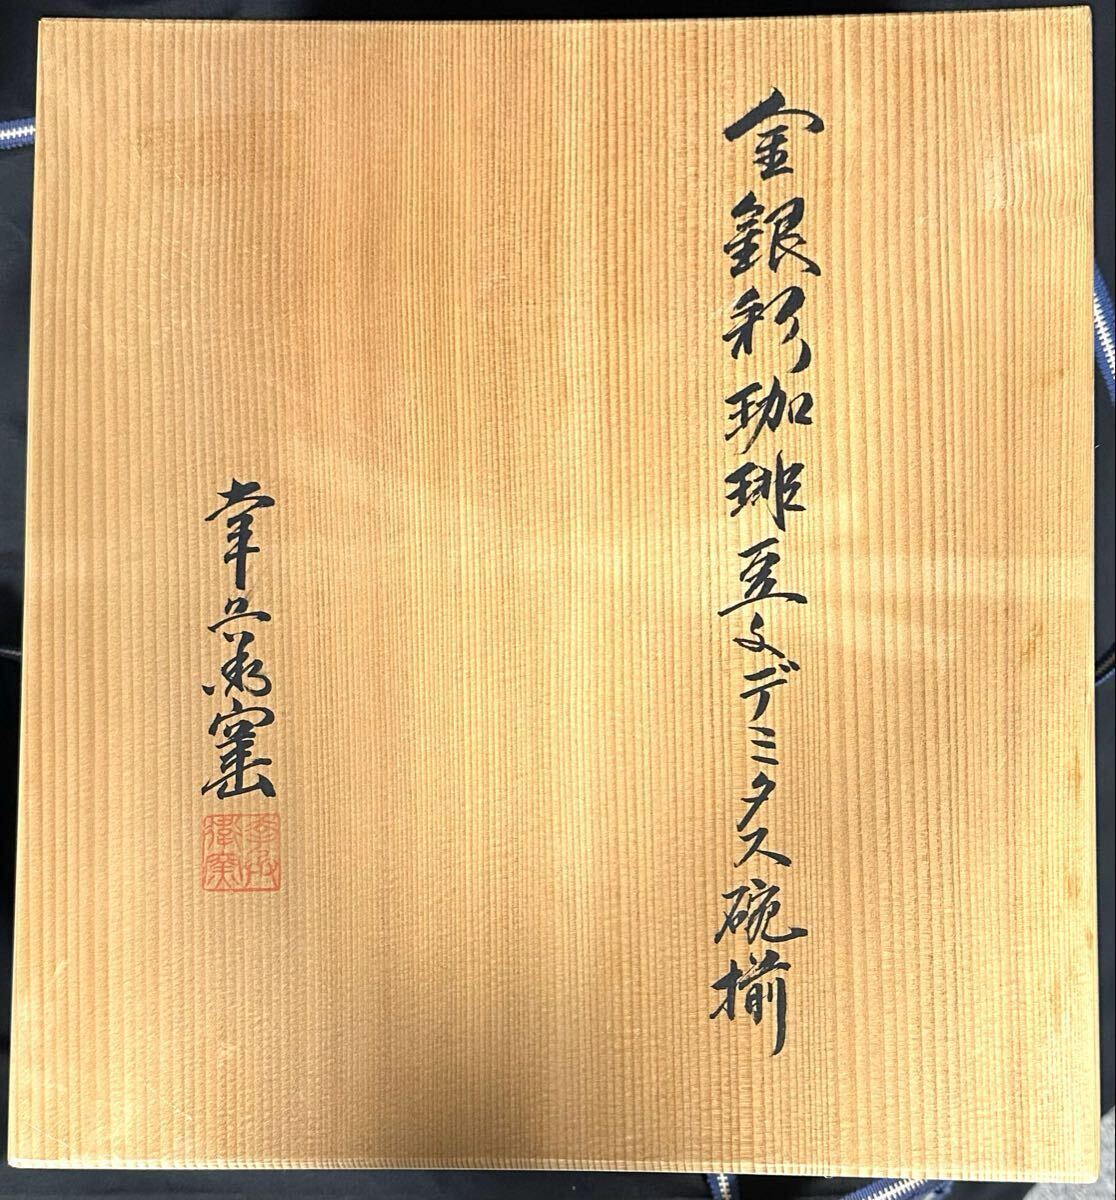 金銀彩珈琲豆文デミタス碗揃
幸兵衛窯
幸兵
衛窯